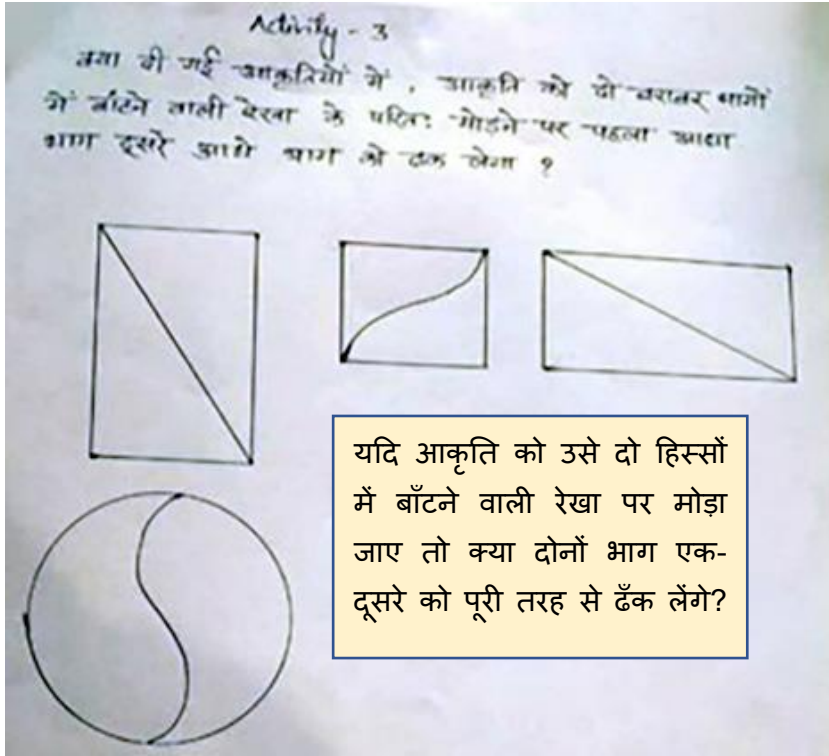 Activity - 3
क्या दी गई आकृतियों में, आकृति को दो बराबर भागों
में बाँटने वाली रेखा के परितः मोड़ने पर पहला आधा
भाग दूसरे आधे भाग को ढक लेगा ?
यदि आकृति को उसे दो हिस्सों
में बाँटने वाली रेखा पर मोड़ा
जाए तो क्या दोनों भाग एक-
दूसरे को पूरी तरह से ढँक लेंगे?